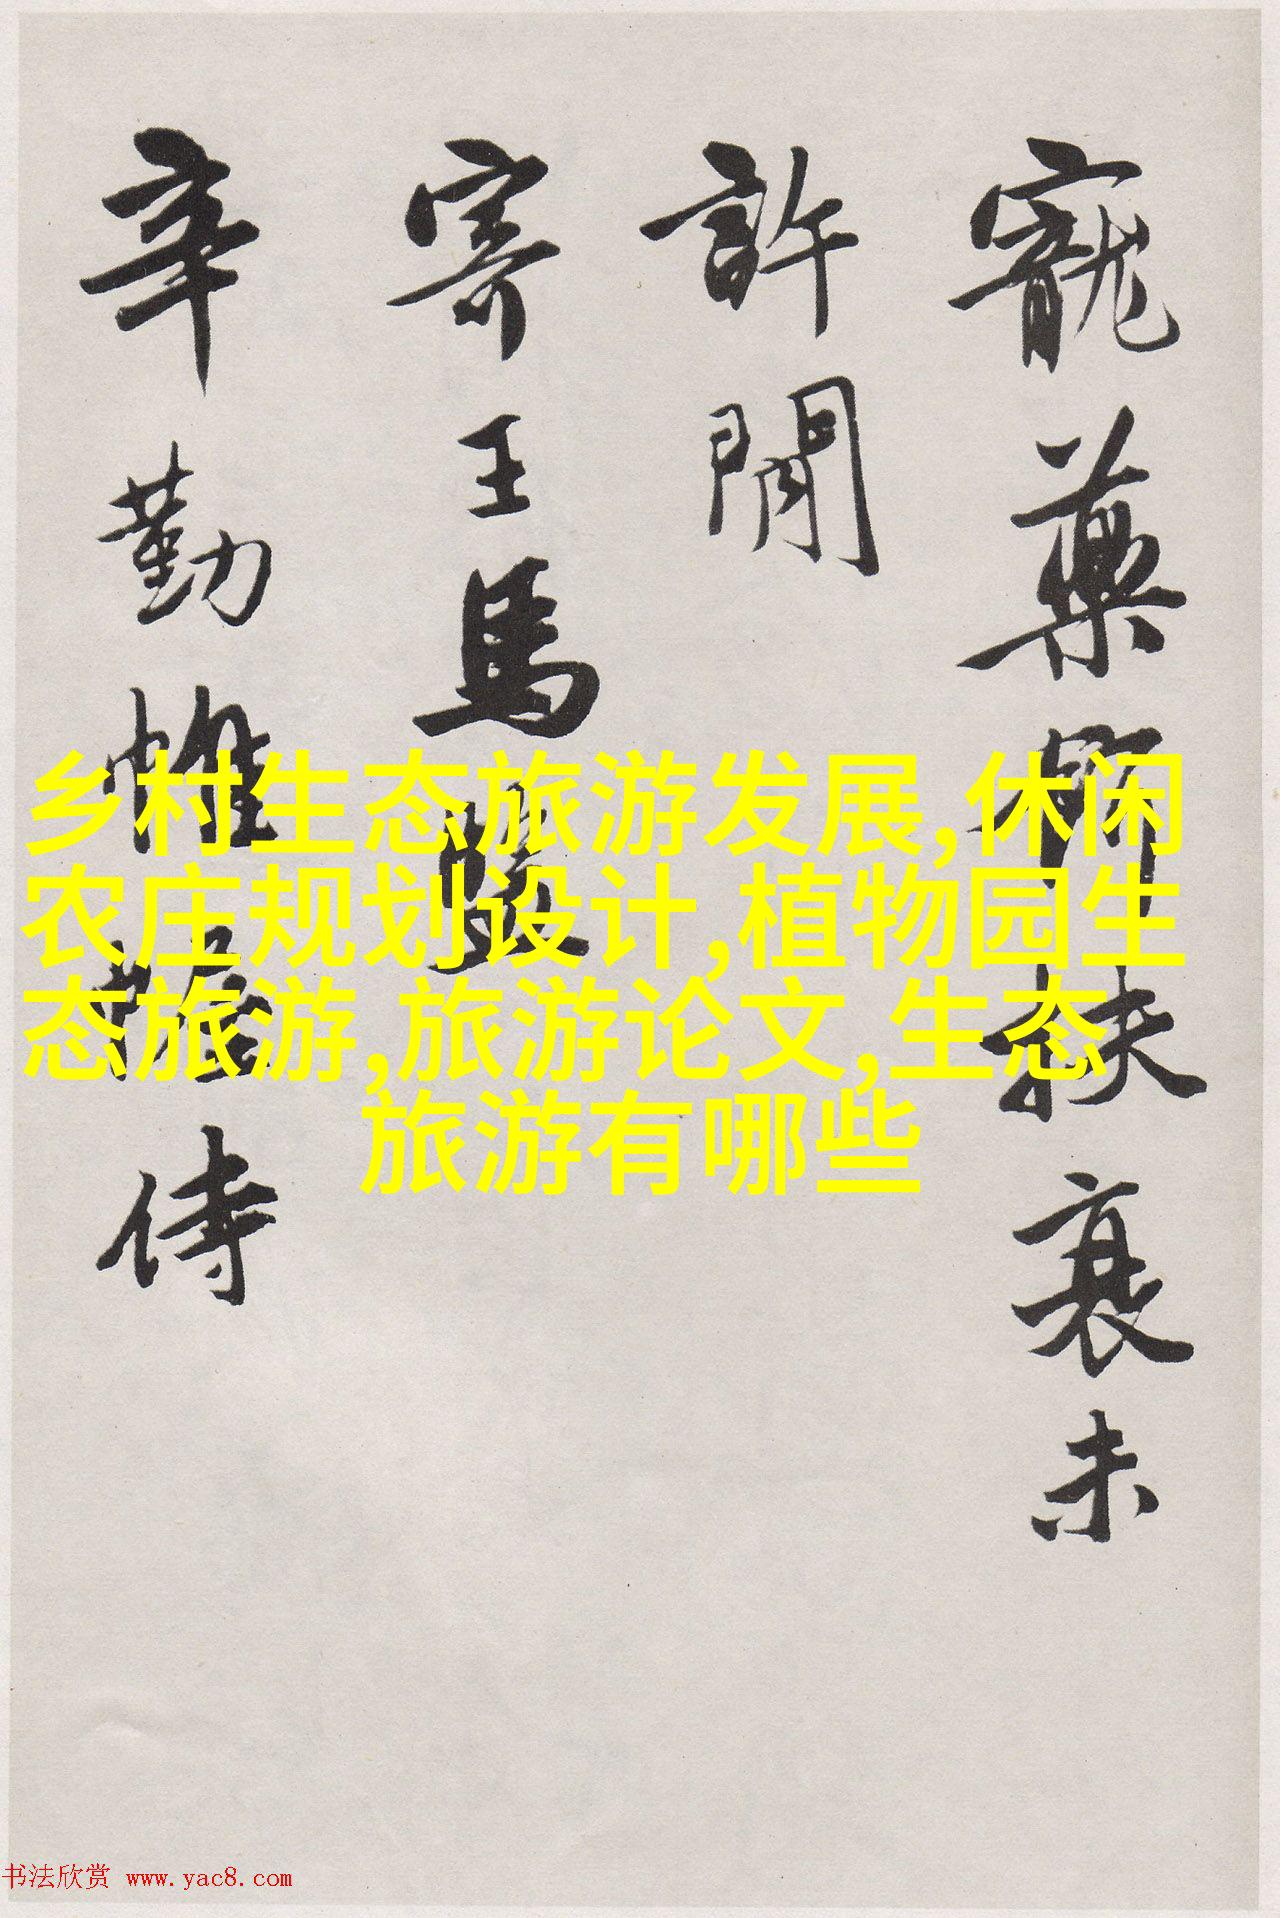 寵藥扶衰未
許閒
寄王馬監
辛勤帷幄侍
乡村生态旅游发展,休闲
农庄规划设计,植物园生
态旅游,旅游论文,生态
旅游有哪些
书法欣赏 www.yac8.com